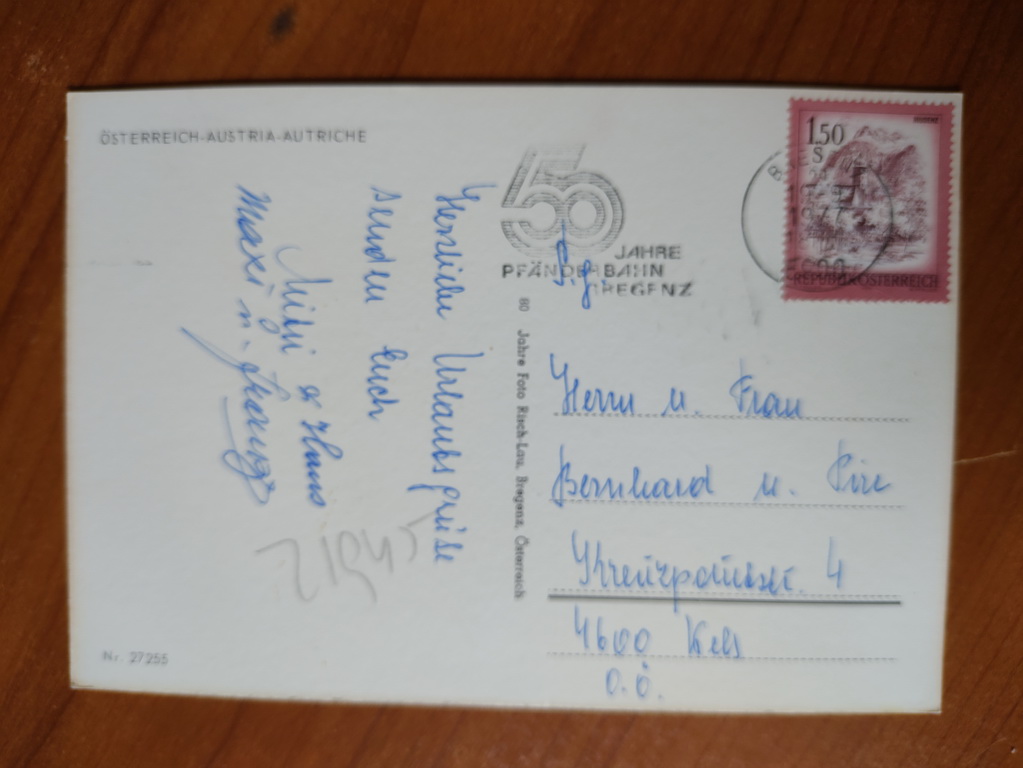 ÖSTERREICH-AUSTRIA-AUTRICHE
Herzliche Urlaubsgrüße
senden Euch
Mitzi & Hans
Maxi u.
Nr. 27255
50 JAHRE
PFÄNDERBAHN
BREGENZ
80 Jahre Foto Risch-Lau, Bregenz, Österreich
1.50
S
1977
REPUBLIK ÖSTERREICH
Herrn u. Frau
Bernhard u.
4
4600 Wels
O.Ö.